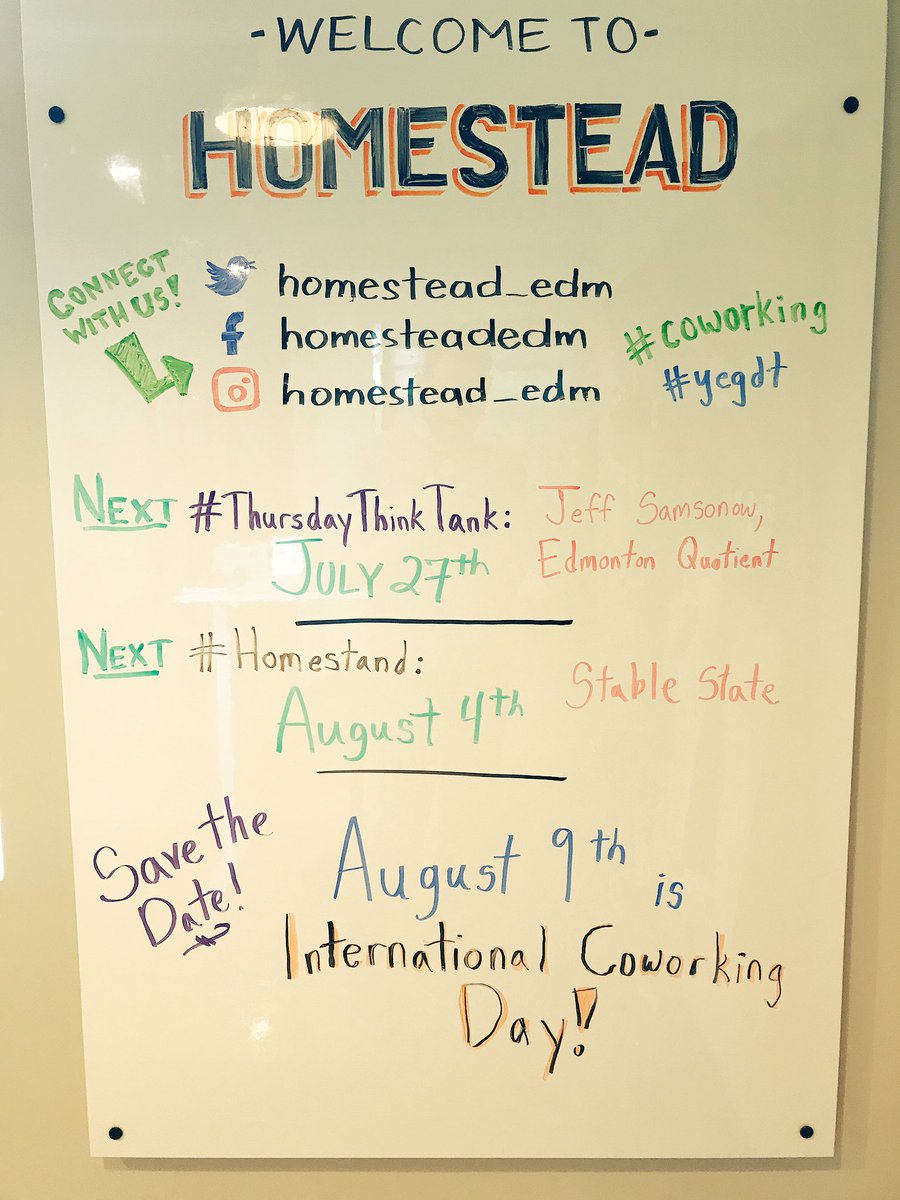 -WELCOME TO-
HOMESTEAD
CONNECT
WITH US!
homestead_edm
homesteadedm
homestead_edm
#coworking
#yegdt
NEXT #ThursdayThinkTank:
JULY 27th
Jeff Samsonow,
Edmonton Quotient
NEXT #Homestand:
August 4th
Stable State
Save the
Date!
August 9th is
International Coworking
Day!